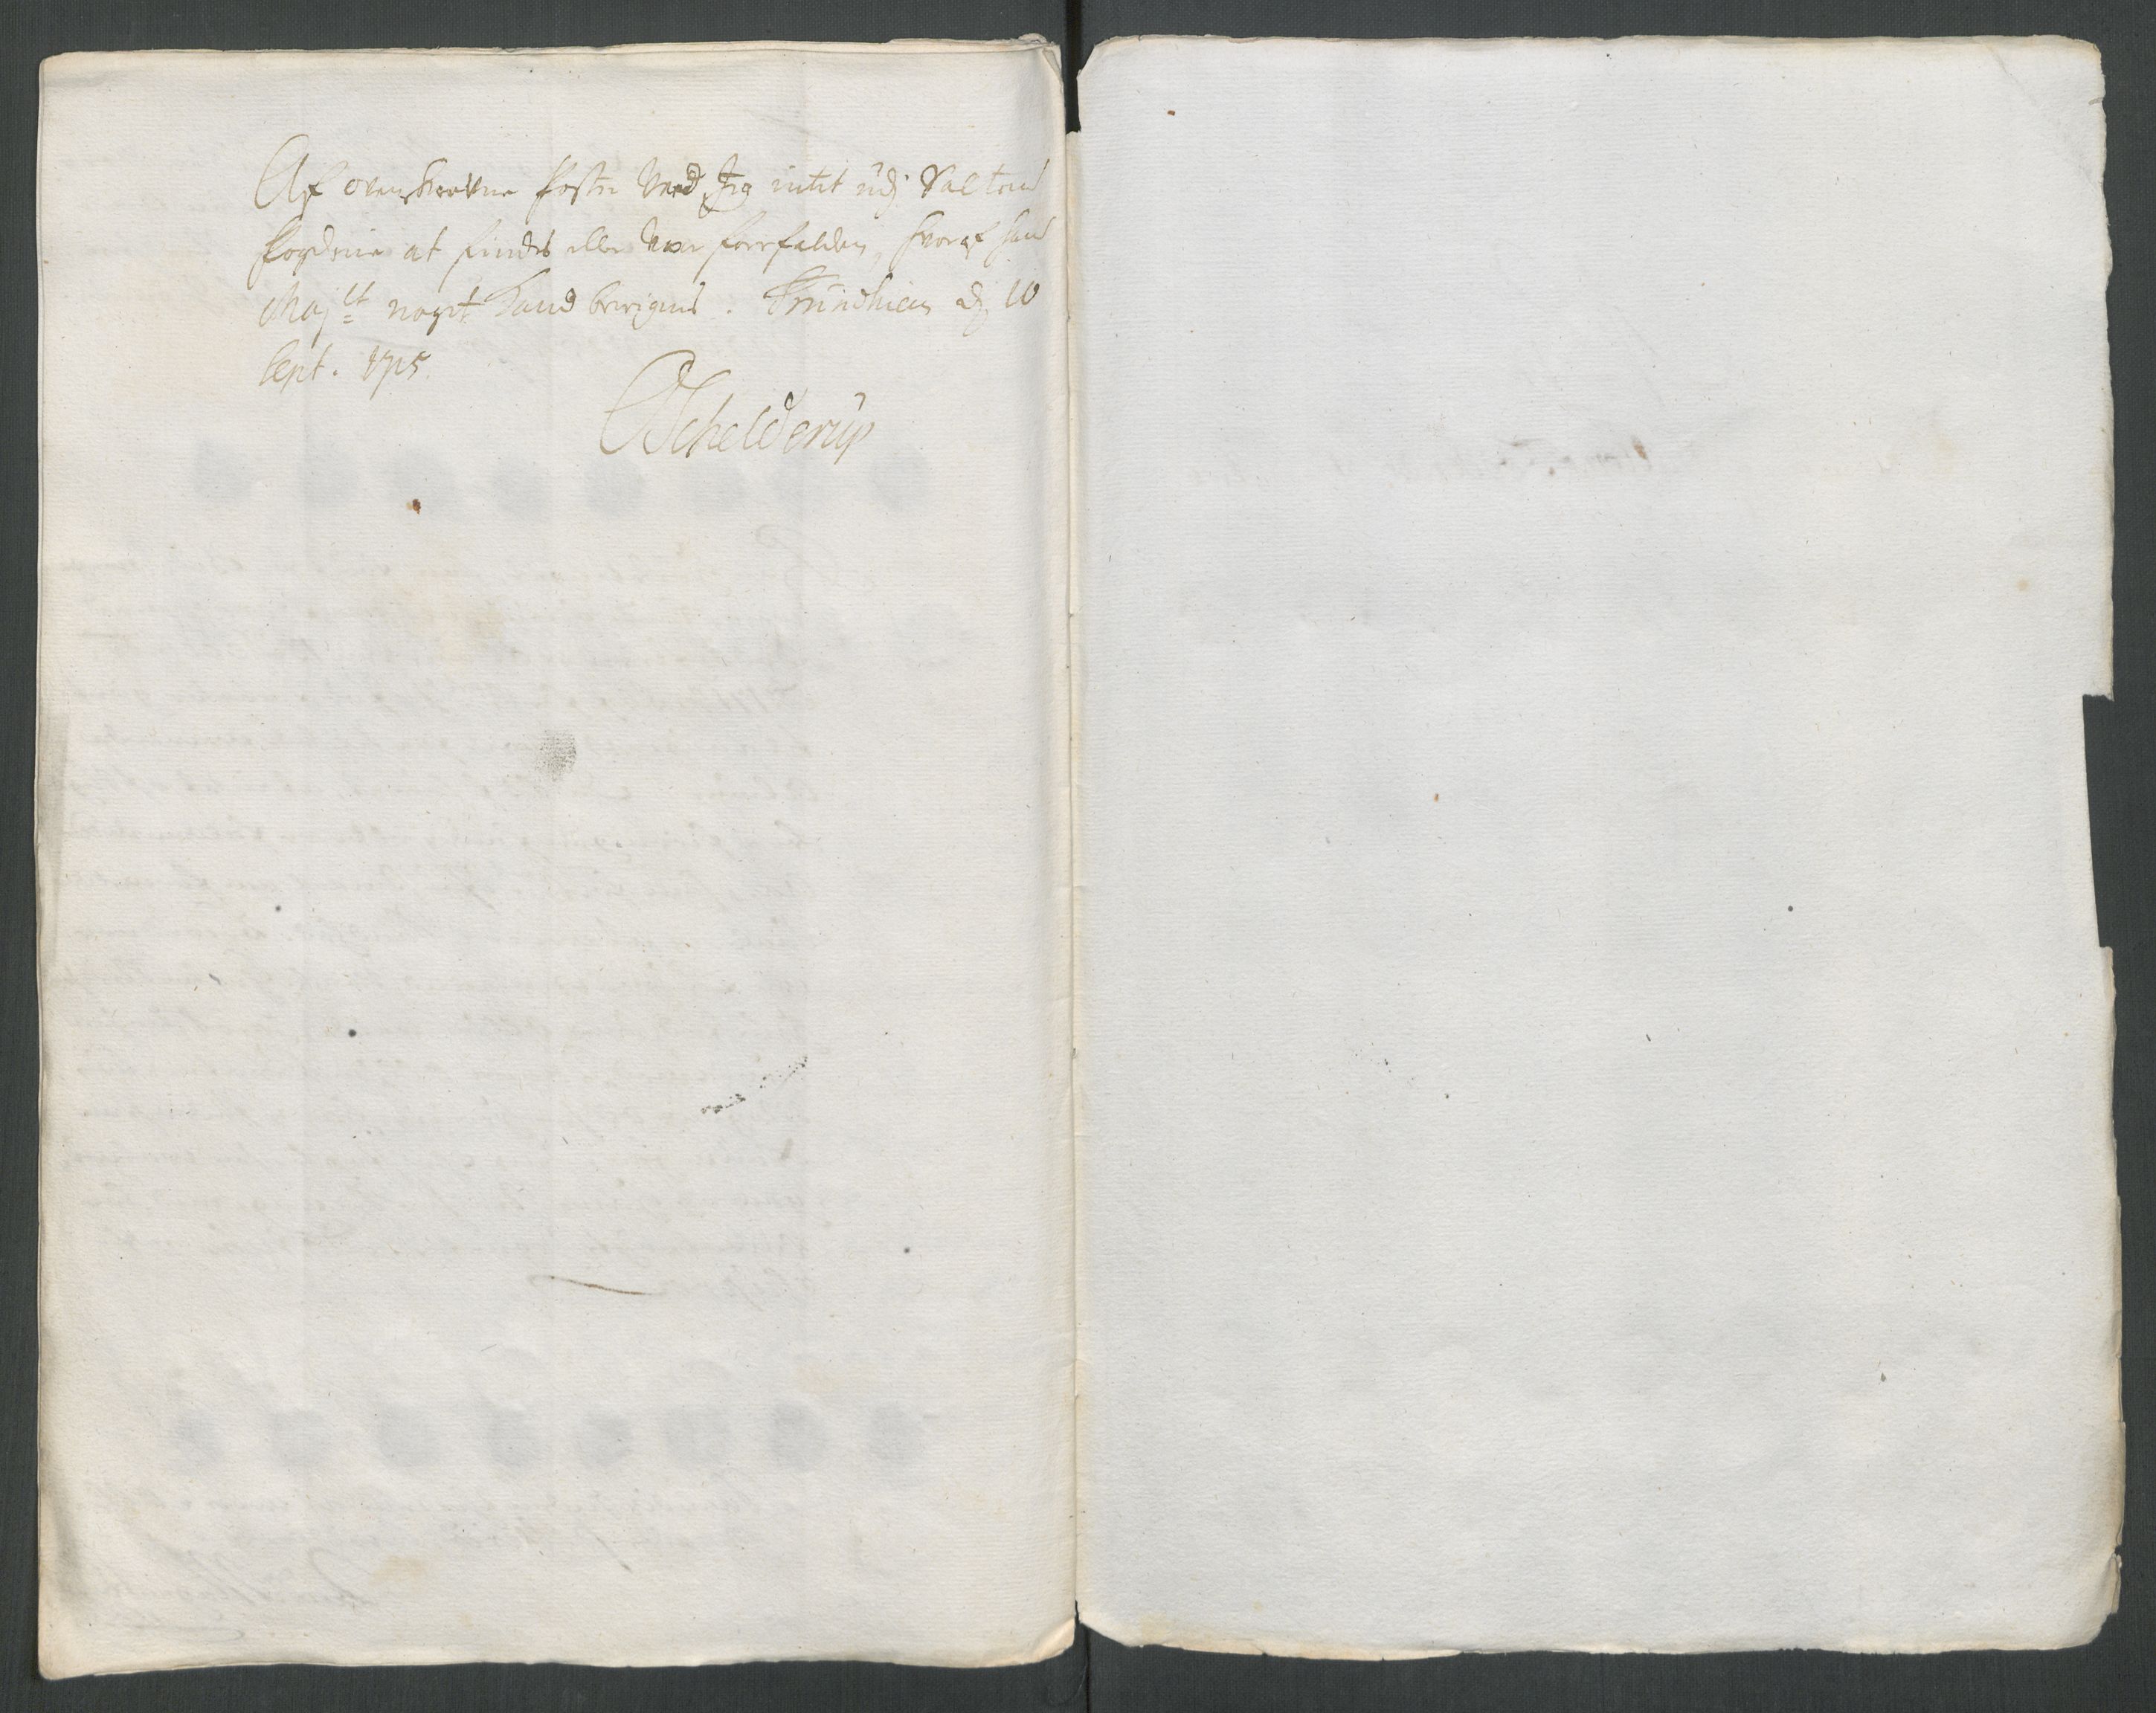 Af ovenskrevne Poster Veed Jeg intet udj Saltens
fogderie at findes eller være forefalden, hvoraf hans
Majet noget kand berignes. Trundhiem dj 10
Sept. 1715
OSchelderup